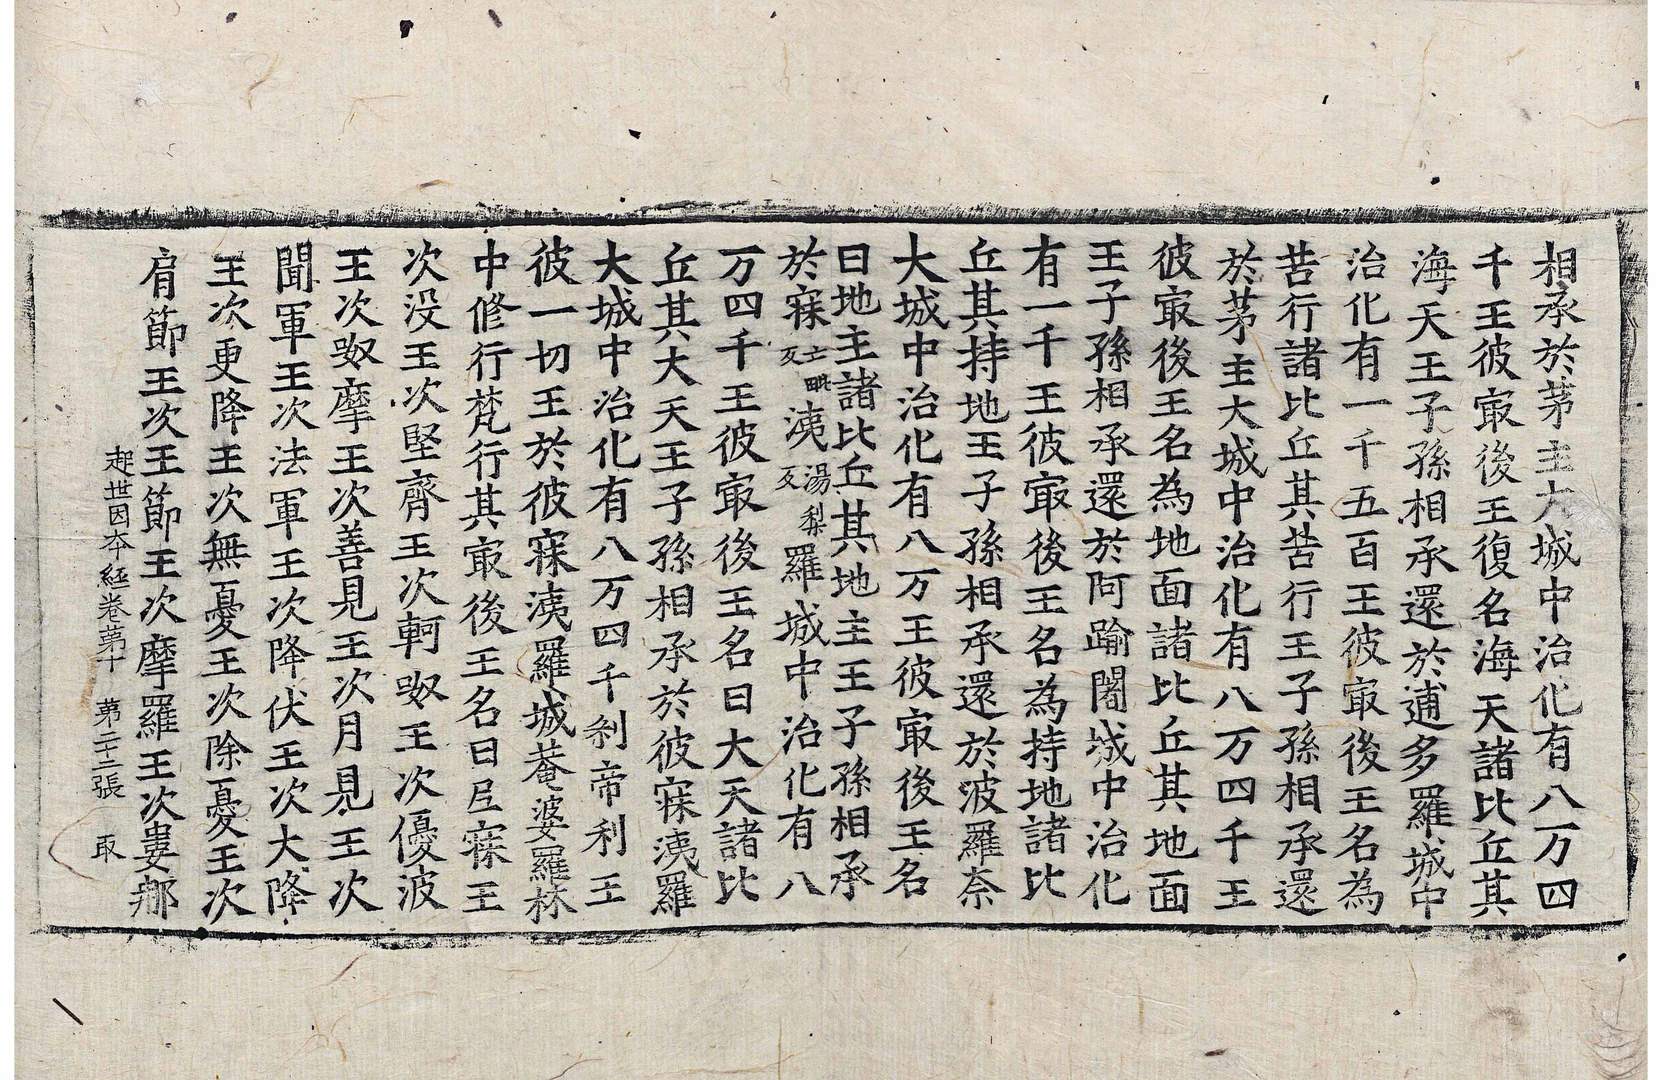 相承於茅主大城中治化有八万四
千王彼㝡後王復名海天諸比丘其
海天王子孫相承還於逋多羅城中
治化有一千五百王彼㝡後王名為
苦行諸比丘其苦行王子孫相承還
於茅主大城中治化有八万四千王
彼㝡後王名為地面諸比丘其地面
王子孫相承還於阿踰闍城中治化
有一千王彼㝡後王名為持地諸比
丘其持地王子孫相承還於波羅奈
大城中治化有八万王彼㝡後王名
曰地主諸比丘其地主王子孫相承
於寐亡畎反洟湯梨反羅城中治化有八
万四千王彼㝡後王名曰大天諸比
丘其大天王子孫相承於彼寐洟羅
大城中治化有八万四千剎帝利王
彼一切王於彼寐洟羅城菴婆羅林
中修行梵行其㝡後王名曰𡰱寐王
次没王次堅齊王次軻呶王次優波
王次呶摩王次善見王次月見王次
聞軍王次法軍王次降伏王次大降
王次更降王次無憂王次除憂王次
肩節王次王節王次摩羅王次婁那
起世因本經卷第十 第二十二張 取